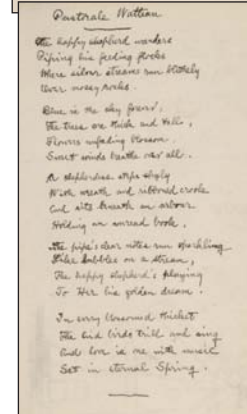 Pastorale Watteau
The happy shepherd wanders
Piping his feeding flocks
Where silver streams run blithely
Over mossy rocks.
Blue is the sky forever,
The trees are thick and tall,
Flowers unfading blossom,
Sweet winds breathe over all.
A shepherdess steps shyly
With wreath and ribboned crook
And sits beneath an arbour
Holding an unread book.
The pipe's clear notes run sparkling
Like bubbles on a stream,
The happy shepherd's playing
To Her his golden dream.
In every blossomed thicket
The bird birds trill and sing
And love is one with music
Set in eternal Spring.